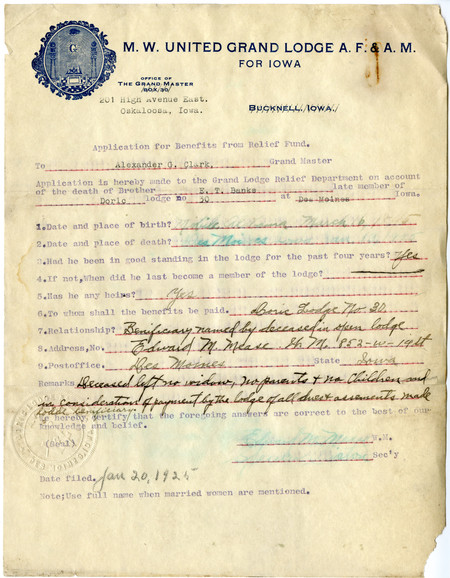 G
M. W. UNITED GRAND LODGE A. F. & A. M.
FOR IOWA
OFFICE OF
THE GRAND MASTER
BOX 30
201 High Avenue East.
Oskaloosa, Iowa.
BUCKNELL, IOWA,
Application for Benefits from Relief Fund.
To Alexander G. Clark, Grand Master
Application is hereby made to the Grand Lodge Relief Department on account
of the death of Brother E. T. Banks late member of
Doric lodge no 30 at Des Moines Iowa.
1.Date and place of birth? March 16
2.Date and place of death? Des Moines Iowa Jan
3.Had he been in good standing in the lodge for the past four years? Yes
4.If not,When did he last become a member of the lodge?
5.Has he any heirs? Yes
6.To whom shall the benefits be paid. Doric Lodge No. 30
7.Relationship? Benificary named by deceased in open lodge
8.Address,No. Edward M. Mease W. M. 852-W-19St
9.Postoffice. Des Moines State Iowa
Remarks Deceased left no widow, no parents & no children and
in consideration of payment by the lodge of all dues & assesments made
lodge benificiary.
I hereby, certify that the foregoing answers are correct to the best of our
knowledge and belief.
(Seal) W.M.
Sec'y
Date filed. Jan 20, 1925
Note;Use full name when married women are mentioned.